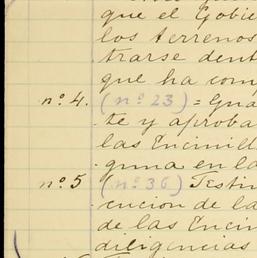 que el Gobie
los terrenos
trarse dent
que ha com
nº 4. (nº 23) = Gua
te y aproba
las Encinill
guna en la
nº 5 (nº 36) Testim
cucion de la
de las Encin
diligencias